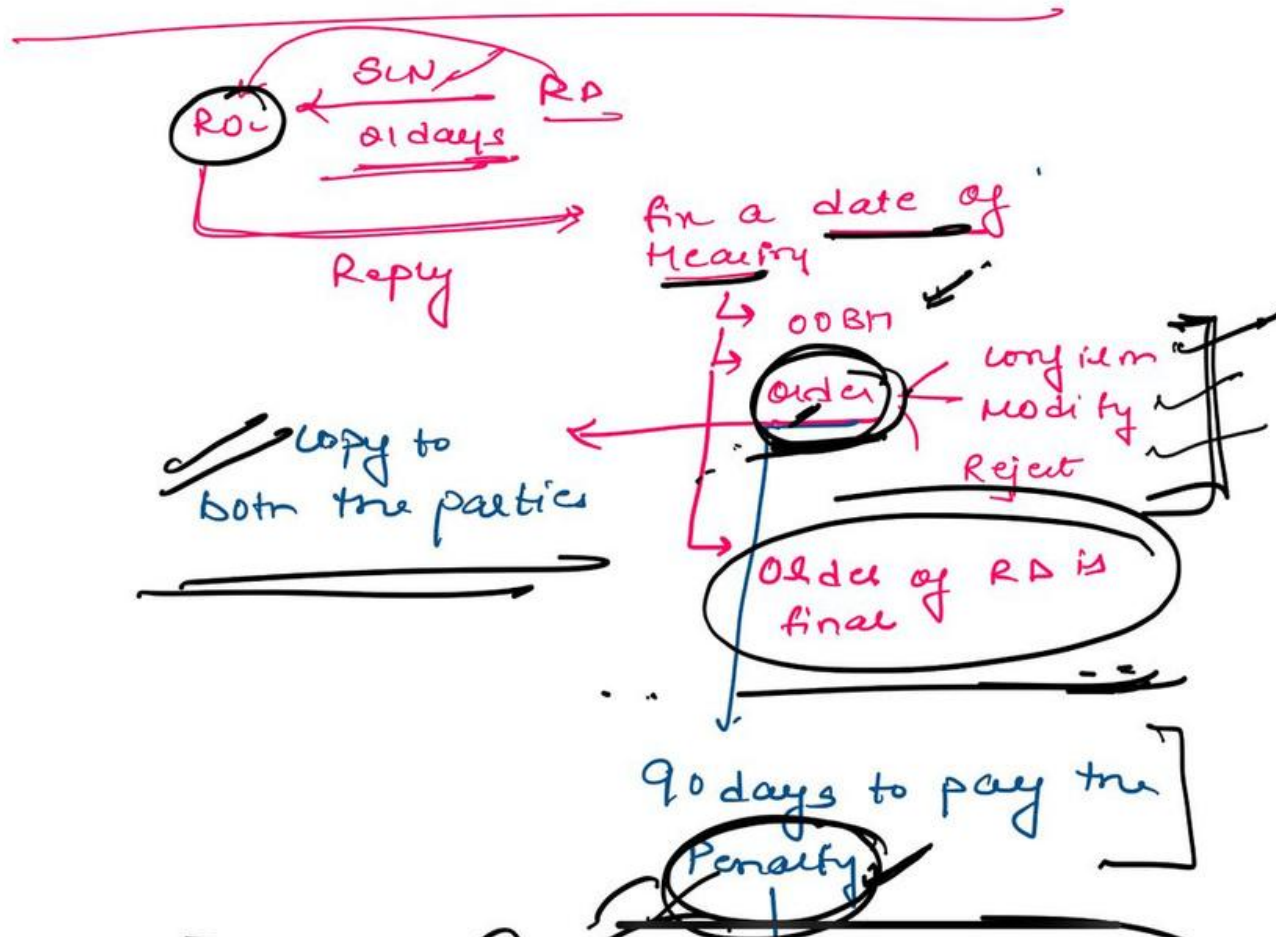 SCN
RD
ROC
21 days
Reply
fix a date of
Hearing
OOBH
Order
confirm
Modify
Reject
copy to
both the parties
Order of RD is
final
90 days to pay the
Penalty